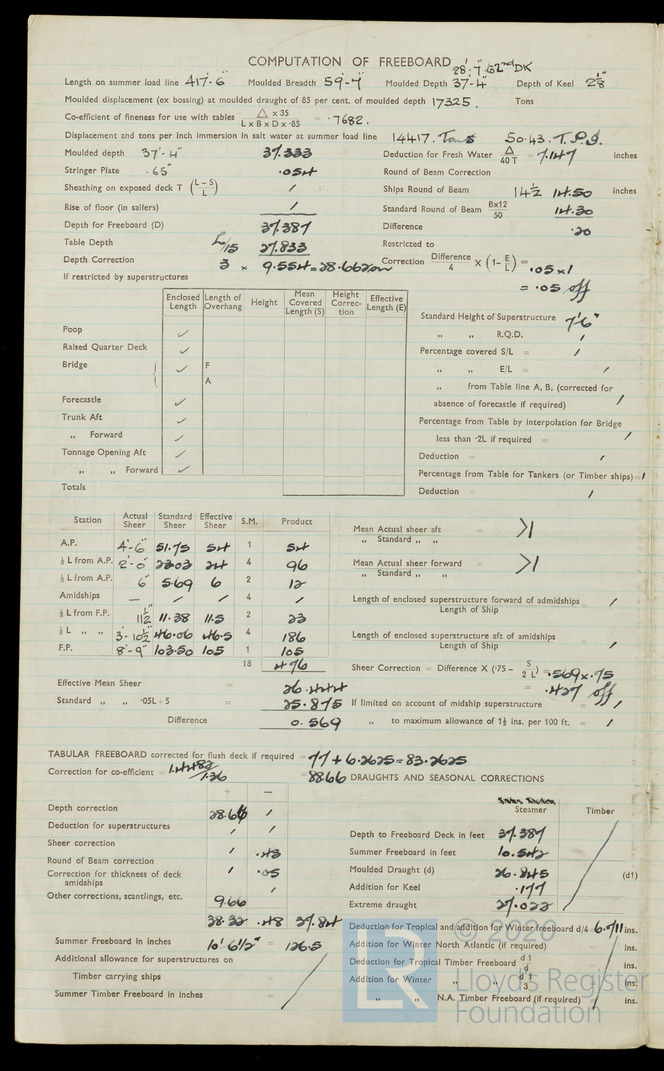 COMPUTATION OF FREEBOARD 28'·7" to 2nd DK
Length on summer load line 417'·6" Moulded Breadth 59'-7" Moulded Depth 37'-4" Depth of Keel 2 1/8"
Moulded displacement (ex bossing) at moulded draught of 85 per cent. of moulded depth 17325. Tons
Co-efficient of fineness for use with tables △ x 35 / L x B x D x ·85 = ·7682.
Displacement and tons per inch immersion in salt water at summer load line 14417. Tons 50·43. T.P.I.
Moulded depth 37'-4" 37.333 Deduction for Fresh Water △ / 40 T = 7.147 inches
Stringer Plate ·65" ·054 Round of Beam Correction
Sheathing on exposed deck T (L–S / L) / Ships Round of Beam 14½ 14.50 inches
Rise of floor (in sailers) / Standard Round of Beam Bx12 / 50 14.30
Depth for Freeboard (D) 37.387 Difference ·20
Table Depth L/15 27.833 Restricted to
Depth Correction 3 x 9.554 = 28.662 Correction Difference / 4 X (1– E / L) = ·05 x 1
If restricted by superstructures = ·05 off
Enclosed Length Length of Overhang Height Mean Covered Length (S) Height Correction Effective Length (E)
Standard Height of Superstructure 7'6"
Poop ✓ „ „ R.Q.D. /
Raised Quarter Deck ✓ Percentage covered S/L = /
Bridge ✓ F „ „ E/L = /
A „ from Table line A, B, (corrected for
Forecastle ✓ absence of forecastle if required) /
Trunk Aft ✓ Percentage from Table by interpolation for Bridge
„ Forward ✓ less than ·2L if required = /
Tonnage Opening Aft ✓ Deduction = /
„ „ Forward ✓ Percentage from Table for Tankers (or Timber ships) = /
Totals Deduction = /
Station Actual Sheer Standard Sheer Effective Sheer S.M. Product
A.P. 4'-6" 51.75 54 1 54
Mean Actual sheer aft / „ Standard „ „ = >1
⅙ L from A.P. 2'-0" 23.03 24 4 96
⅓ L from A.P. 6" 5.69 6 2 12
Mean Actual sheer forward / „ Standard „ „ = >1
Amidships – / / 4 /
Length of enclosed superstructure forward of admidships / Length of Ship
⅓ L from F.P. 11½" 11.38 11.5 2 23
⅙ L „ „ 3'-10½" 46.06 46.5 4 186
Length of enclosed superstructure aft of amidships / Length of Ship = /
F.P. 8'-9" 103.50 105 1 105
18 476
Sheer Correction = Difference X (·75 – S / 2 L) = ·569 x .75
Effective Mean Sheer = 26.444 = ·427 off
Standard „ „ ·05L+5 = 25.875 If limited on account of midship superstructure = /
Difference 0.569 „ to maximum allowance of 1½ ins. per 100 ft. = /
TABULAR FREEBOARD corrected for flush deck if required = 77 + 6.2625 = 83.2625
Correction for co-efficient = 1.4482 / 1.36 = 88.66 DRAUGHTS AND SEASONAL CORRECTIONS
+ –
Steamer Timber
Depth correction 28.66 /
Deduction for superstructures / / Depth to Freeboard Deck in feet 37.387
Sheer correction / ·43 Summer Freeboard in feet 10.542
Round of Beam correction / ·05 Moulded Draught (d) 26.845 (d1)
Correction for thickness of deck amidships / Addition for Keel ·177
Other corrections, scantlings, etc. 9.66 Extreme draught 27.022
38.32 .48 37.84
Deduction for Tropical and addition for Winter freeboard d/4 6.711 ins.
Summer Freeboard in inches 10' 6½" = 126.5 Addition for Winter North Atlantic (if required) – ins.
Additional allowance for superstructures on Deduction for Tropical Timber Freeboard d 1 / d ins.
Timber carrying ships = Addition for Winter „ „ d 1 / 3 ins.
Summer Timber Freeboard in inches = „ „ N.A. Timber Freeboard (if required) ins.
© 2020
LR
Lloyd's Register
Foundation